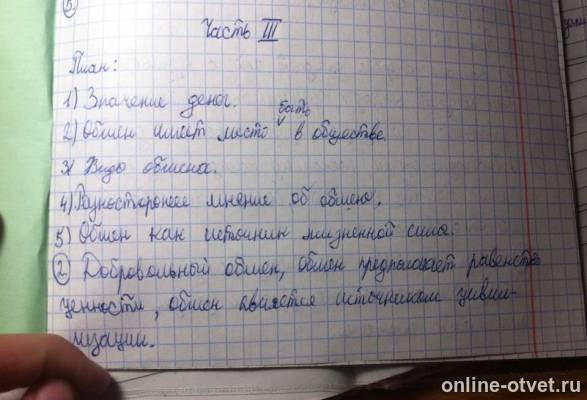 5
Часть III
План:
1) Значение денег.
2) Обмен имеет место быть в обществе.
3) Виды обмена.
4) Разностороннее мнение об обмене.
5) Обмен как источник жизненной силы.
2 Добровольный обмен, обмен предполагает равенство
ценности, обмен является источником циви-
лизации.
online-otvet.ru